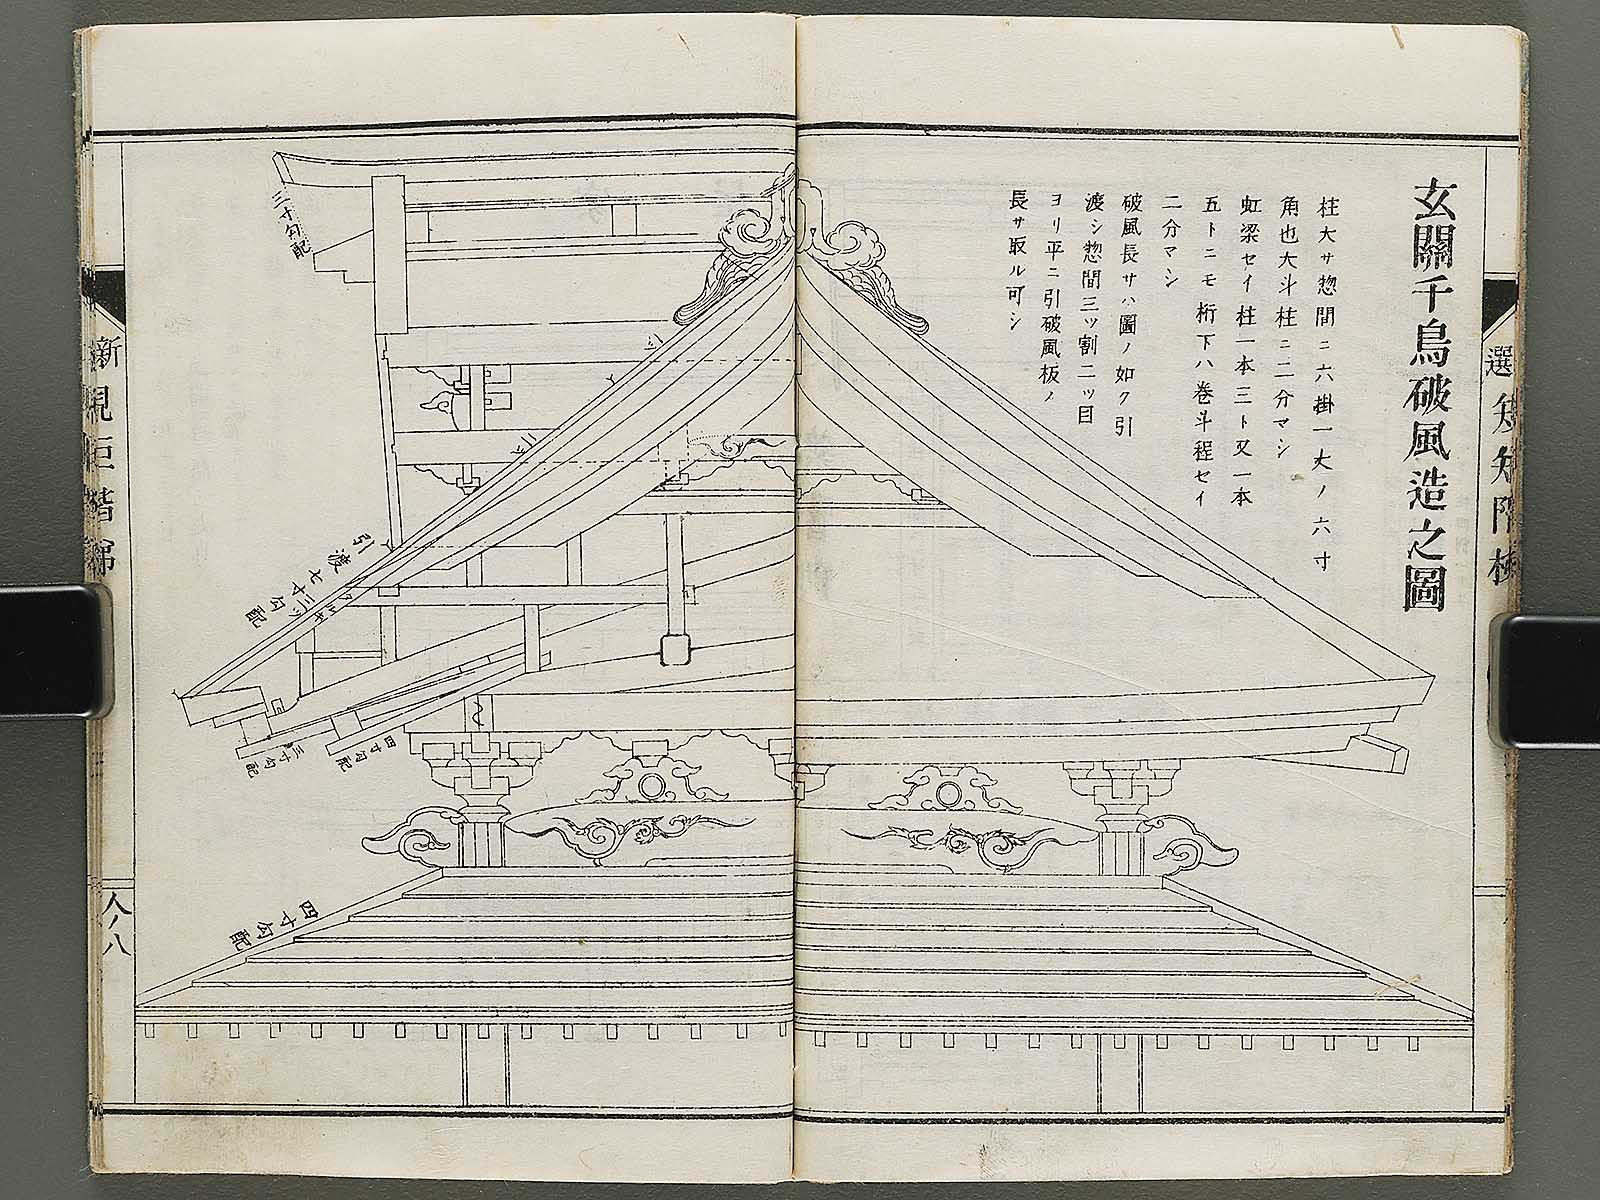 玄關千鳥破風造之圖
柱大サ惣間ニ六掛一丈ノ六寸
角也大斗柱ニ二分マシ
虹梁セイ柱一本三ト又一本
五トニモ桁下ハ巻斗程セイ
二分マシ
破風長サハ圖ノ如ク引
渡シ惣間三ッ割二ッ目
ヨリ平ニ引破風板ノ
長サ取ル可シ
三寸勾配
引渡七寸三分勾配
三寸勾配
四寸勾配
四寸勾配
八ノ八